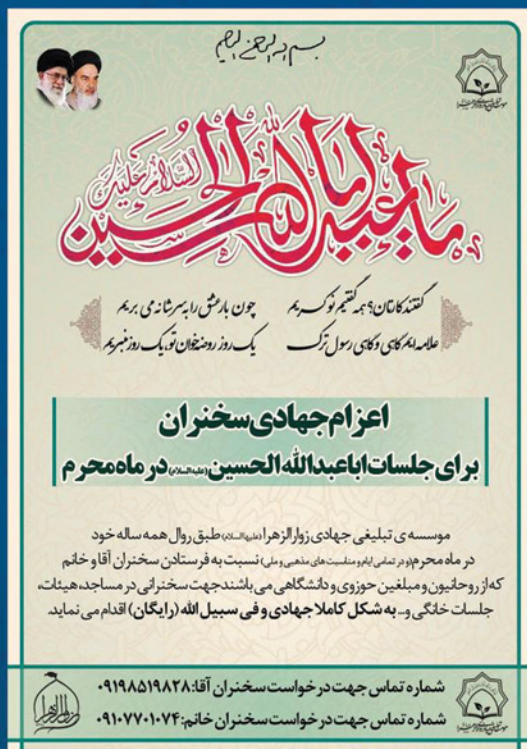 بسم الله الرحمن الرحیم
السلام علیک
یا اباعبدالله الحسین
گفتند کارتان؟ همه گفتیم نوکریم
چون بار عشق را به سر شانه می بریم
علامه ایم گاهی و گاهی رسول ترک
یک روز روضه خوان تو، یک روز منبریم
اعزام جهادی سخنران
برای جلسات اباعبدالله الحسین (علیه السلام) در ماه محرم
موسسه ی تبلیغی جهادی زوارالزهرا (علیهاالسلام) طبق روال همه ساله خود
در ماه محرم (و در تمامی ایام و مناسبت های مذهبی و ملی) نسبت به فرستادن سخنران آقا و خانم
که از روحانیون و مبلغین حوزوی و دانشگاهی می باشند جهت سخنرانی در مساجد، هیئات،
جلسات خانگی و... به شکل کاملا جهادی و فی سبیل الله (رایگان) اقدام می نماید.
شماره تماس جهت درخواست سخنران آقا: ۰۹۱۹۸۵۱۹۸۲۸
شماره تماس جهت درخواست سخنران خانم: ۰۹۱۰۷۷۰۱۰۷۴
زوارالزهرا